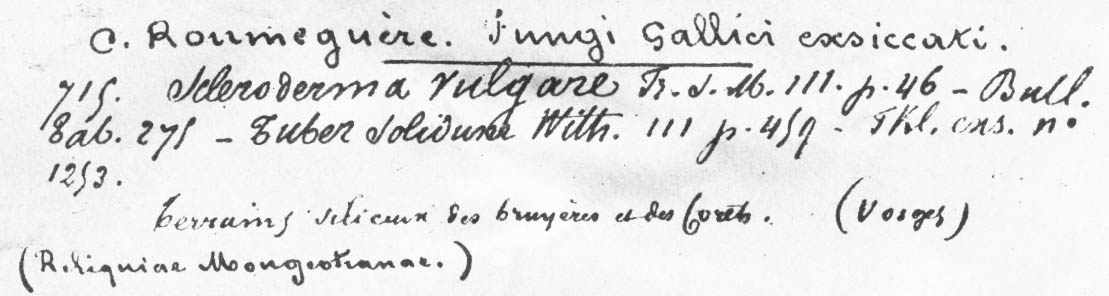 C. Roumeguère. Fungi Gallici exsiccati.
715. Scleroderma vulgare Fr. S. M. III. p. 46 – Bull.
Tab. 275 – Tuber solidum With. III p. 459 – Fkl. exs. n°
1253.
Terrains siliceux des bruyères et des forêts. (Vosges)
(Reliquiae Mougeotianae.)